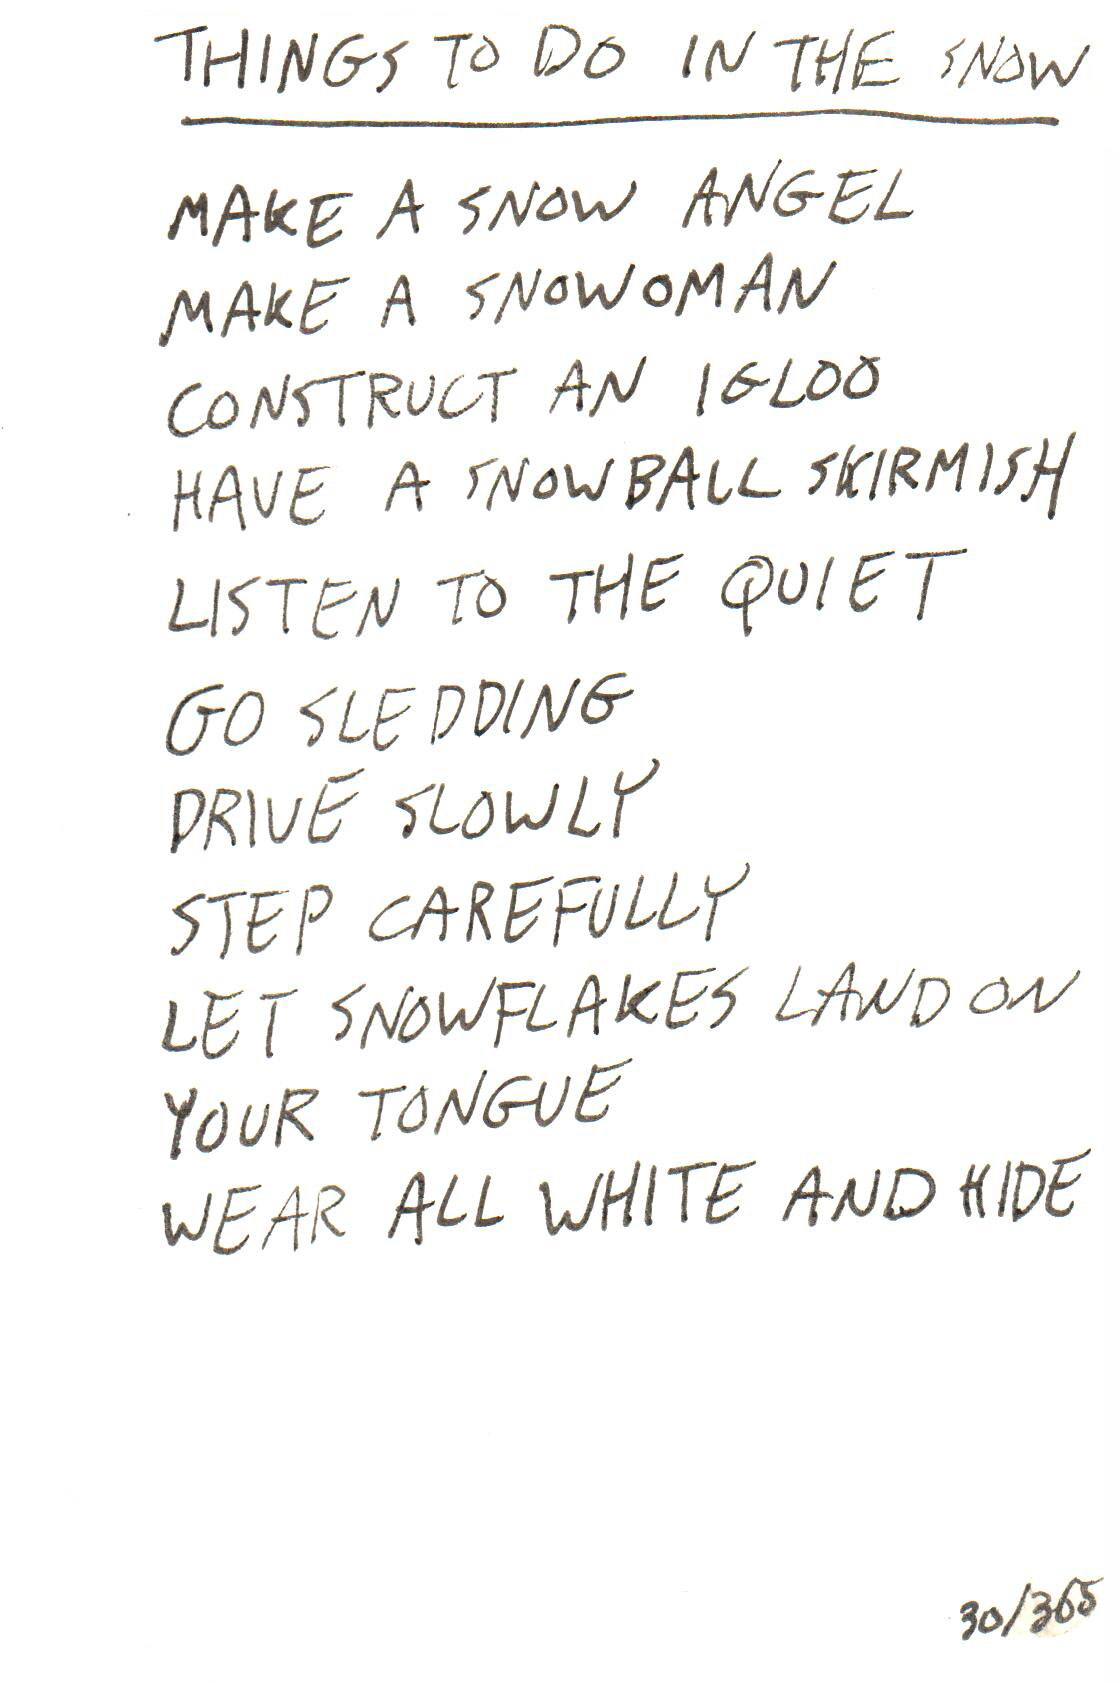 THINGS TO DO IN THE SNOW
MAKE A SNOW ANGEL
MAKE A SNOWOMAN
CONSTRUCT AN IGLOO
HAVE A SNOWBALL SKIRMISH
LISTEN TO THE QUIET
GO SLEDDING
DRIVE SLOWLY
STEP CAREFULLY
LET SNOWFLAKES LAND ON
YOUR TONGUE
WEAR ALL WHITE AND HIDE
30/365